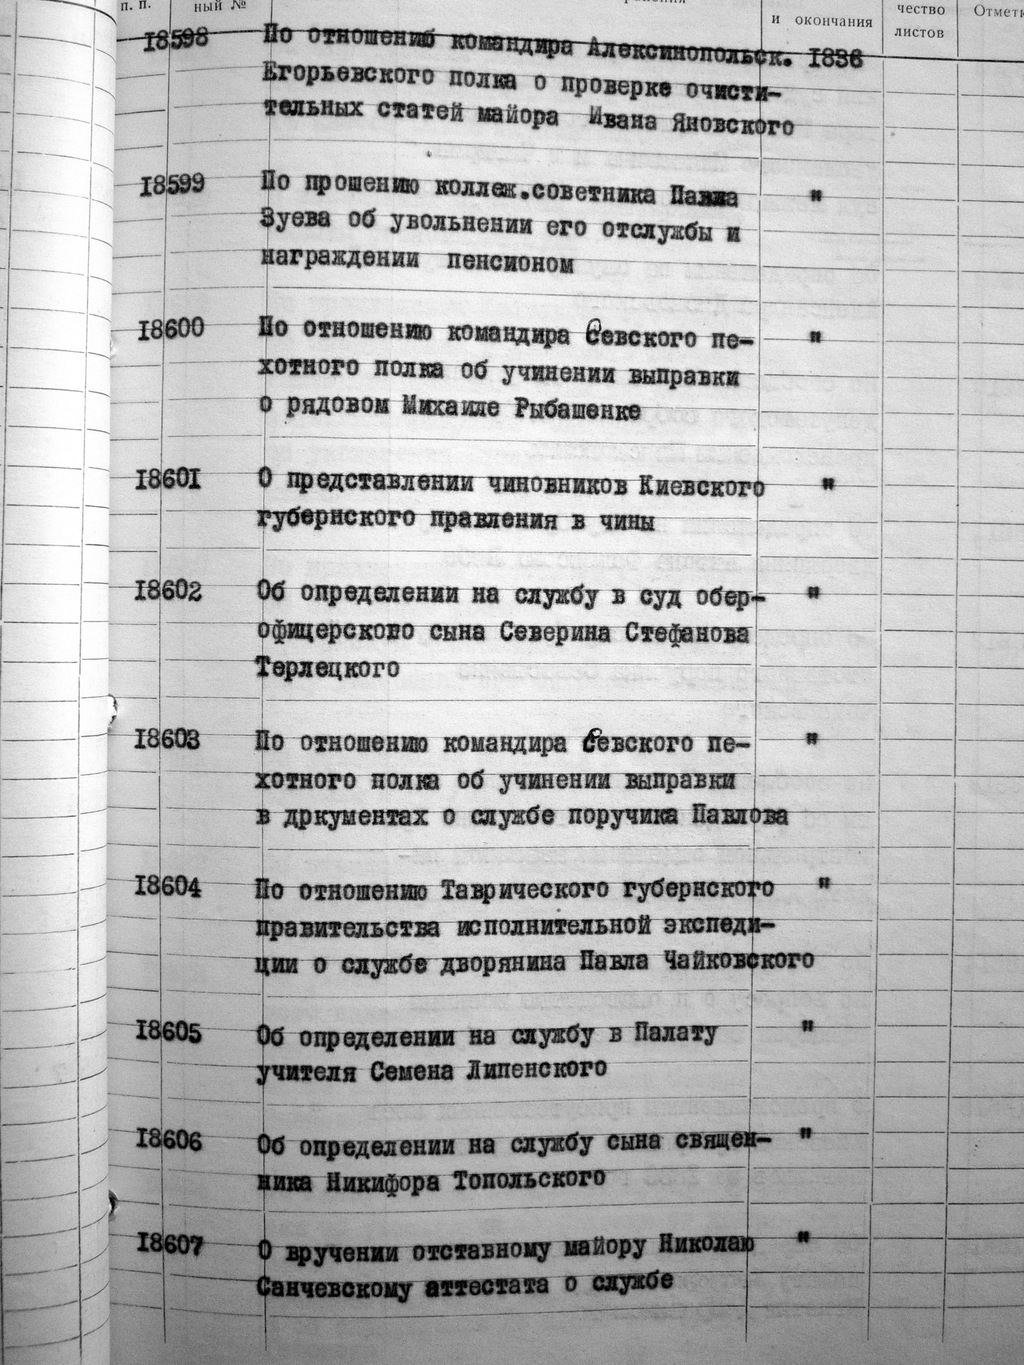 п. п.
ный №
и окончания
чество
листов
Отметк
18598 По отношению командира Алексинопольск. 1836
Егорьевского полка о проверке очисти-
тельных статей майора Ивана Яновского
18599 По прошению коллеж.советника Павла "
Зуева об увольнении его отслужбы и
награждении пенсионом
18600 По отношению командира Севского пе- "
хотного полка об учинении выправки
о рядовом Михаиле Рыбашенке
18601 О представлении чиновников Киевского "
губернского правления в чины
18602 Об определении на службу в суд обер- "
офицерского сына Северина Стефанова
Терлецкого
18603 По отношению командира Севского пе- "
хотного полка об учинении выправки
в дркументах о службе поручика Павлова
18604 По отношению Таврического губернского "
правительства исполнительной экспеди-
ции о службе дворянина Павла Чайковского
18605 Об определении на службу в Палату "
учителя Семена Липенского
18606 Об определении на службу сына священ- "
ника Никифора Топольского
18607 О вручении отставному майору Николаю "
Санчевскому аттестата о службе